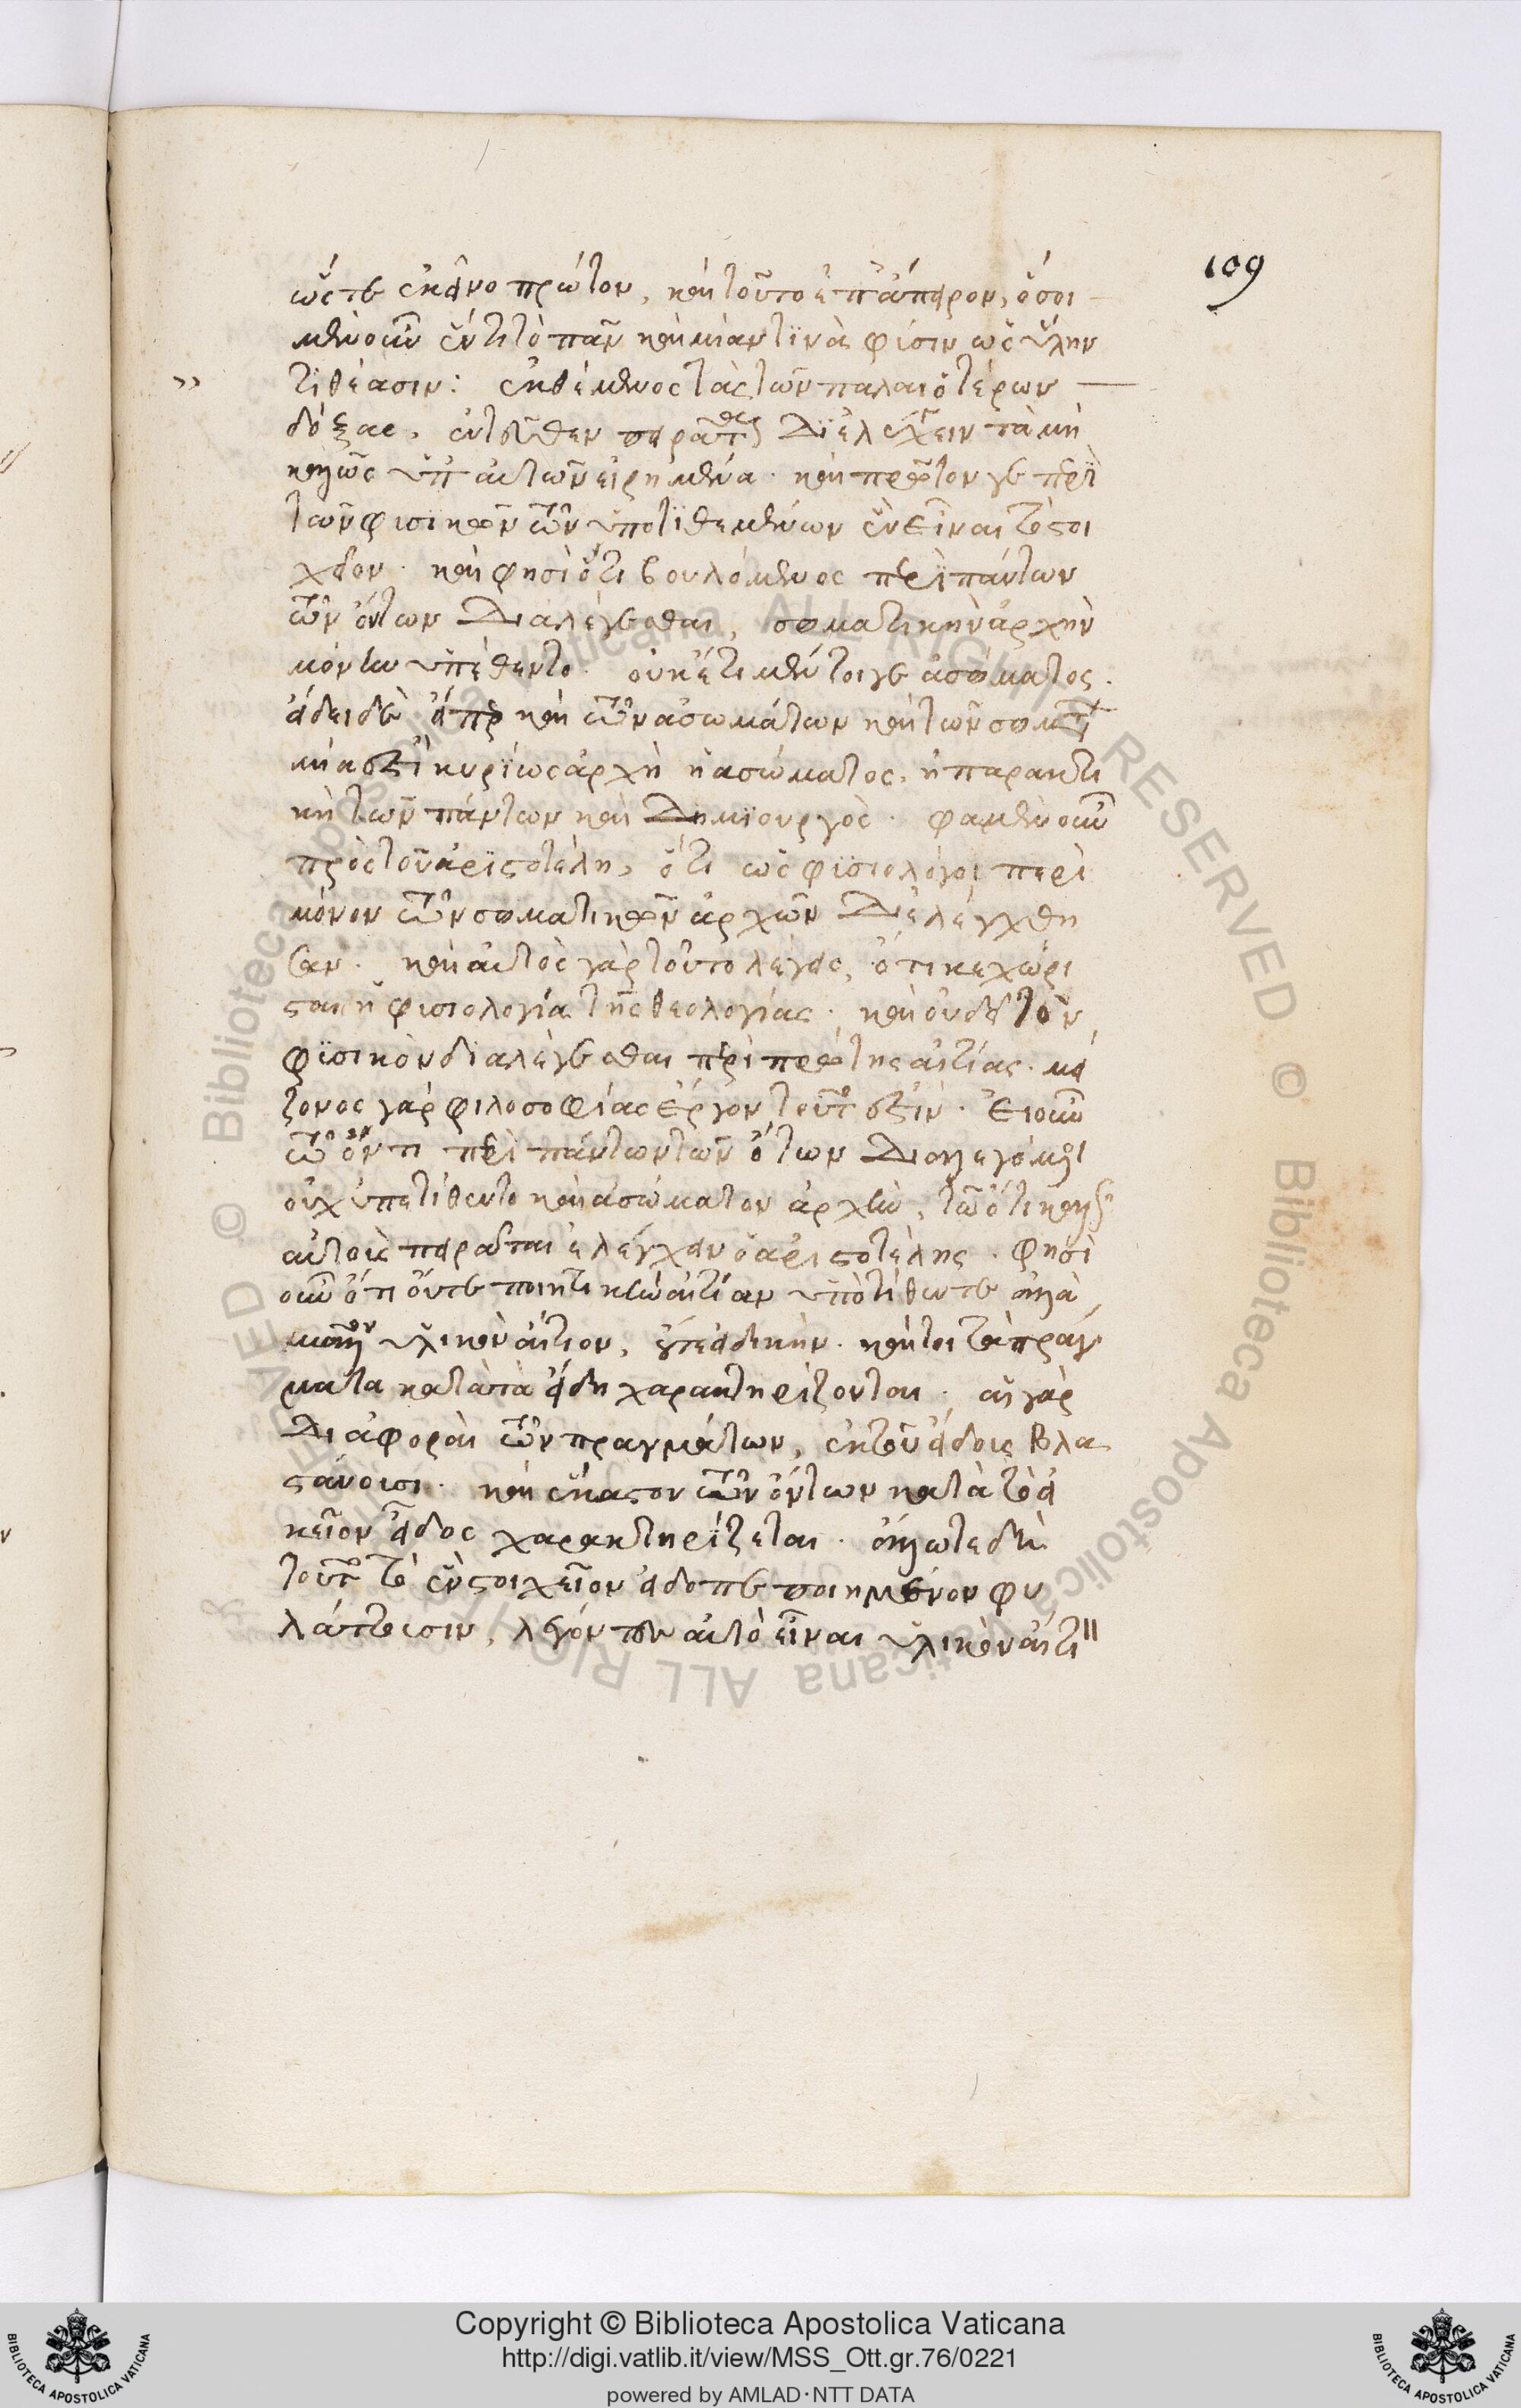 109
ὥστε ἐκεῖνο πρῶτον, καὶ τοῦτο ἐπ' ἄπειρον, ὅσοι
μὲν οὖν ἕν τι τὸ πᾶν καὶ μίαν τϊνὰ φίσιν ὡς ὕλην
τϊθέασιν: ἐκθέμενος τὰς τῶν παλαιοτέρων
δόξας, ἐντεῦθεν πειρᾶται διελέγχειν τὰ μὴ
καλῶς ὑπ' αὐτῶν εἰρημένα. καὶ πρῶτον γε περὶ
τῶν φισικῶν τῶν ὑποτϊθεμένων ἓν εἶναι τὸ στοι
χεῖον. καὶ φησὶ ὅτι βουλόμενος περὶ πάντων
τῶν ὄντων διαλέγεσθαι, σωματικὴν ἀρχὴν
μόνην ὑπέθεντο. οὐκέτι μέντοιγε ἀσώματος.
ἔδει δὲ εἴπερ καὶ τῶν ἀσωμάτων καὶ τῶν σωμάτ
μία ἐστὶ κυρίως ἀρχὴ ἡ ἀσώματος, ἡ παρακτι
κὴ τῶν πάντων καὶ δημϊουργὸς. φαμὲν οὖν
πρὸς τὸν ἀρϊστοτέλη, ὅτι ὡς φϊσιολόγοι περὶ
μόνον τῶν σωματικῶν ἀρχῶν διελέγχθη
σαν. καὶ αὐτὸς γὰρ τοῦτο λέγεις, ὅτι κεχώρι
σται ἡ φισιολογία τῆς θεολογίας. καὶ οὐδὲ τὸν
φϊσικὸν διαλέγεσθαι περὶ πρώτης αἰτίας. μεί
ζονος γὰρ φιλοσοφίας ἔργον τοῦτό ἐστιν. Εἰ οὖν
τῷ ὄντι περὶ πάντων τῶν ὄτων διαλεγόμενοι
οὐχ ὑπετίθεντο καὶ ἀσώματον ἀρχὴν, τῶ ὅτι καὶ
αὐτοῖς πειρᾶται ἐλέγχειν ὁ ἀριστοτέλης. φησὶ
οὖν ὅτι οὔτε ποιητικὴν αἰτίαν ὑπὸτίθεντε ἀλλὰ
μᾶλλον ὑλικὸν αἴτιον, οὔτε εἰδικὴν. καίτοι τὰ πράγ
ματα κατὰ τὰ εἴδη χαρακτηρίζονται. αἱ γὰρ
διαφοραὶ τῶν πραγμάτων, ἐκ τοῦ εἴδοις βλα
στάνοισι. καὶ ἕκαστον τῶν ὄντων κατὰ τὸ οἰ
κεῖον εἶδος χαρακτηρϊζεται. ἄλλωτε δὲ
τοῦτο τὸ ἓν στοιχεῖον εἰδοπεποιημένον φυ
λάττοισιν, λέγόντων αὐτὸ εἶναι ὑλικὸν αἴτι
Copyright © Biblioteca Apostolica Vaticana
http://digi.vatlib.it/view/MSS_Ott.gr.76/0221
powered by AMLAD·NTT DATA